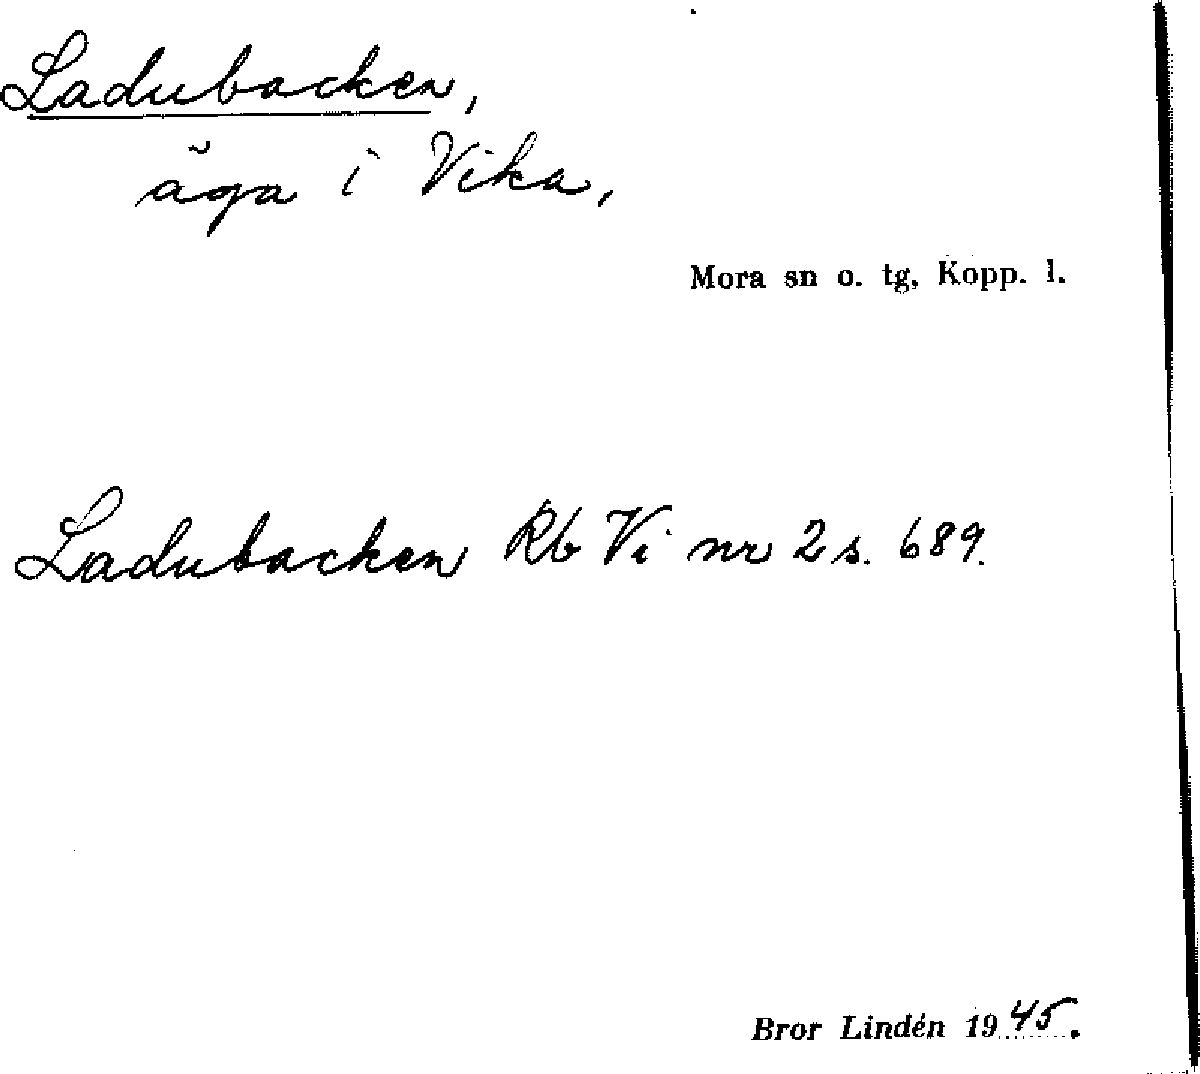 Ladubacken,
äga i Vika,
Mora sn o. tg, Kopp. l.
Ladubacken Rb Vi nr 2 s. 689.
Bror Lindén 1945.